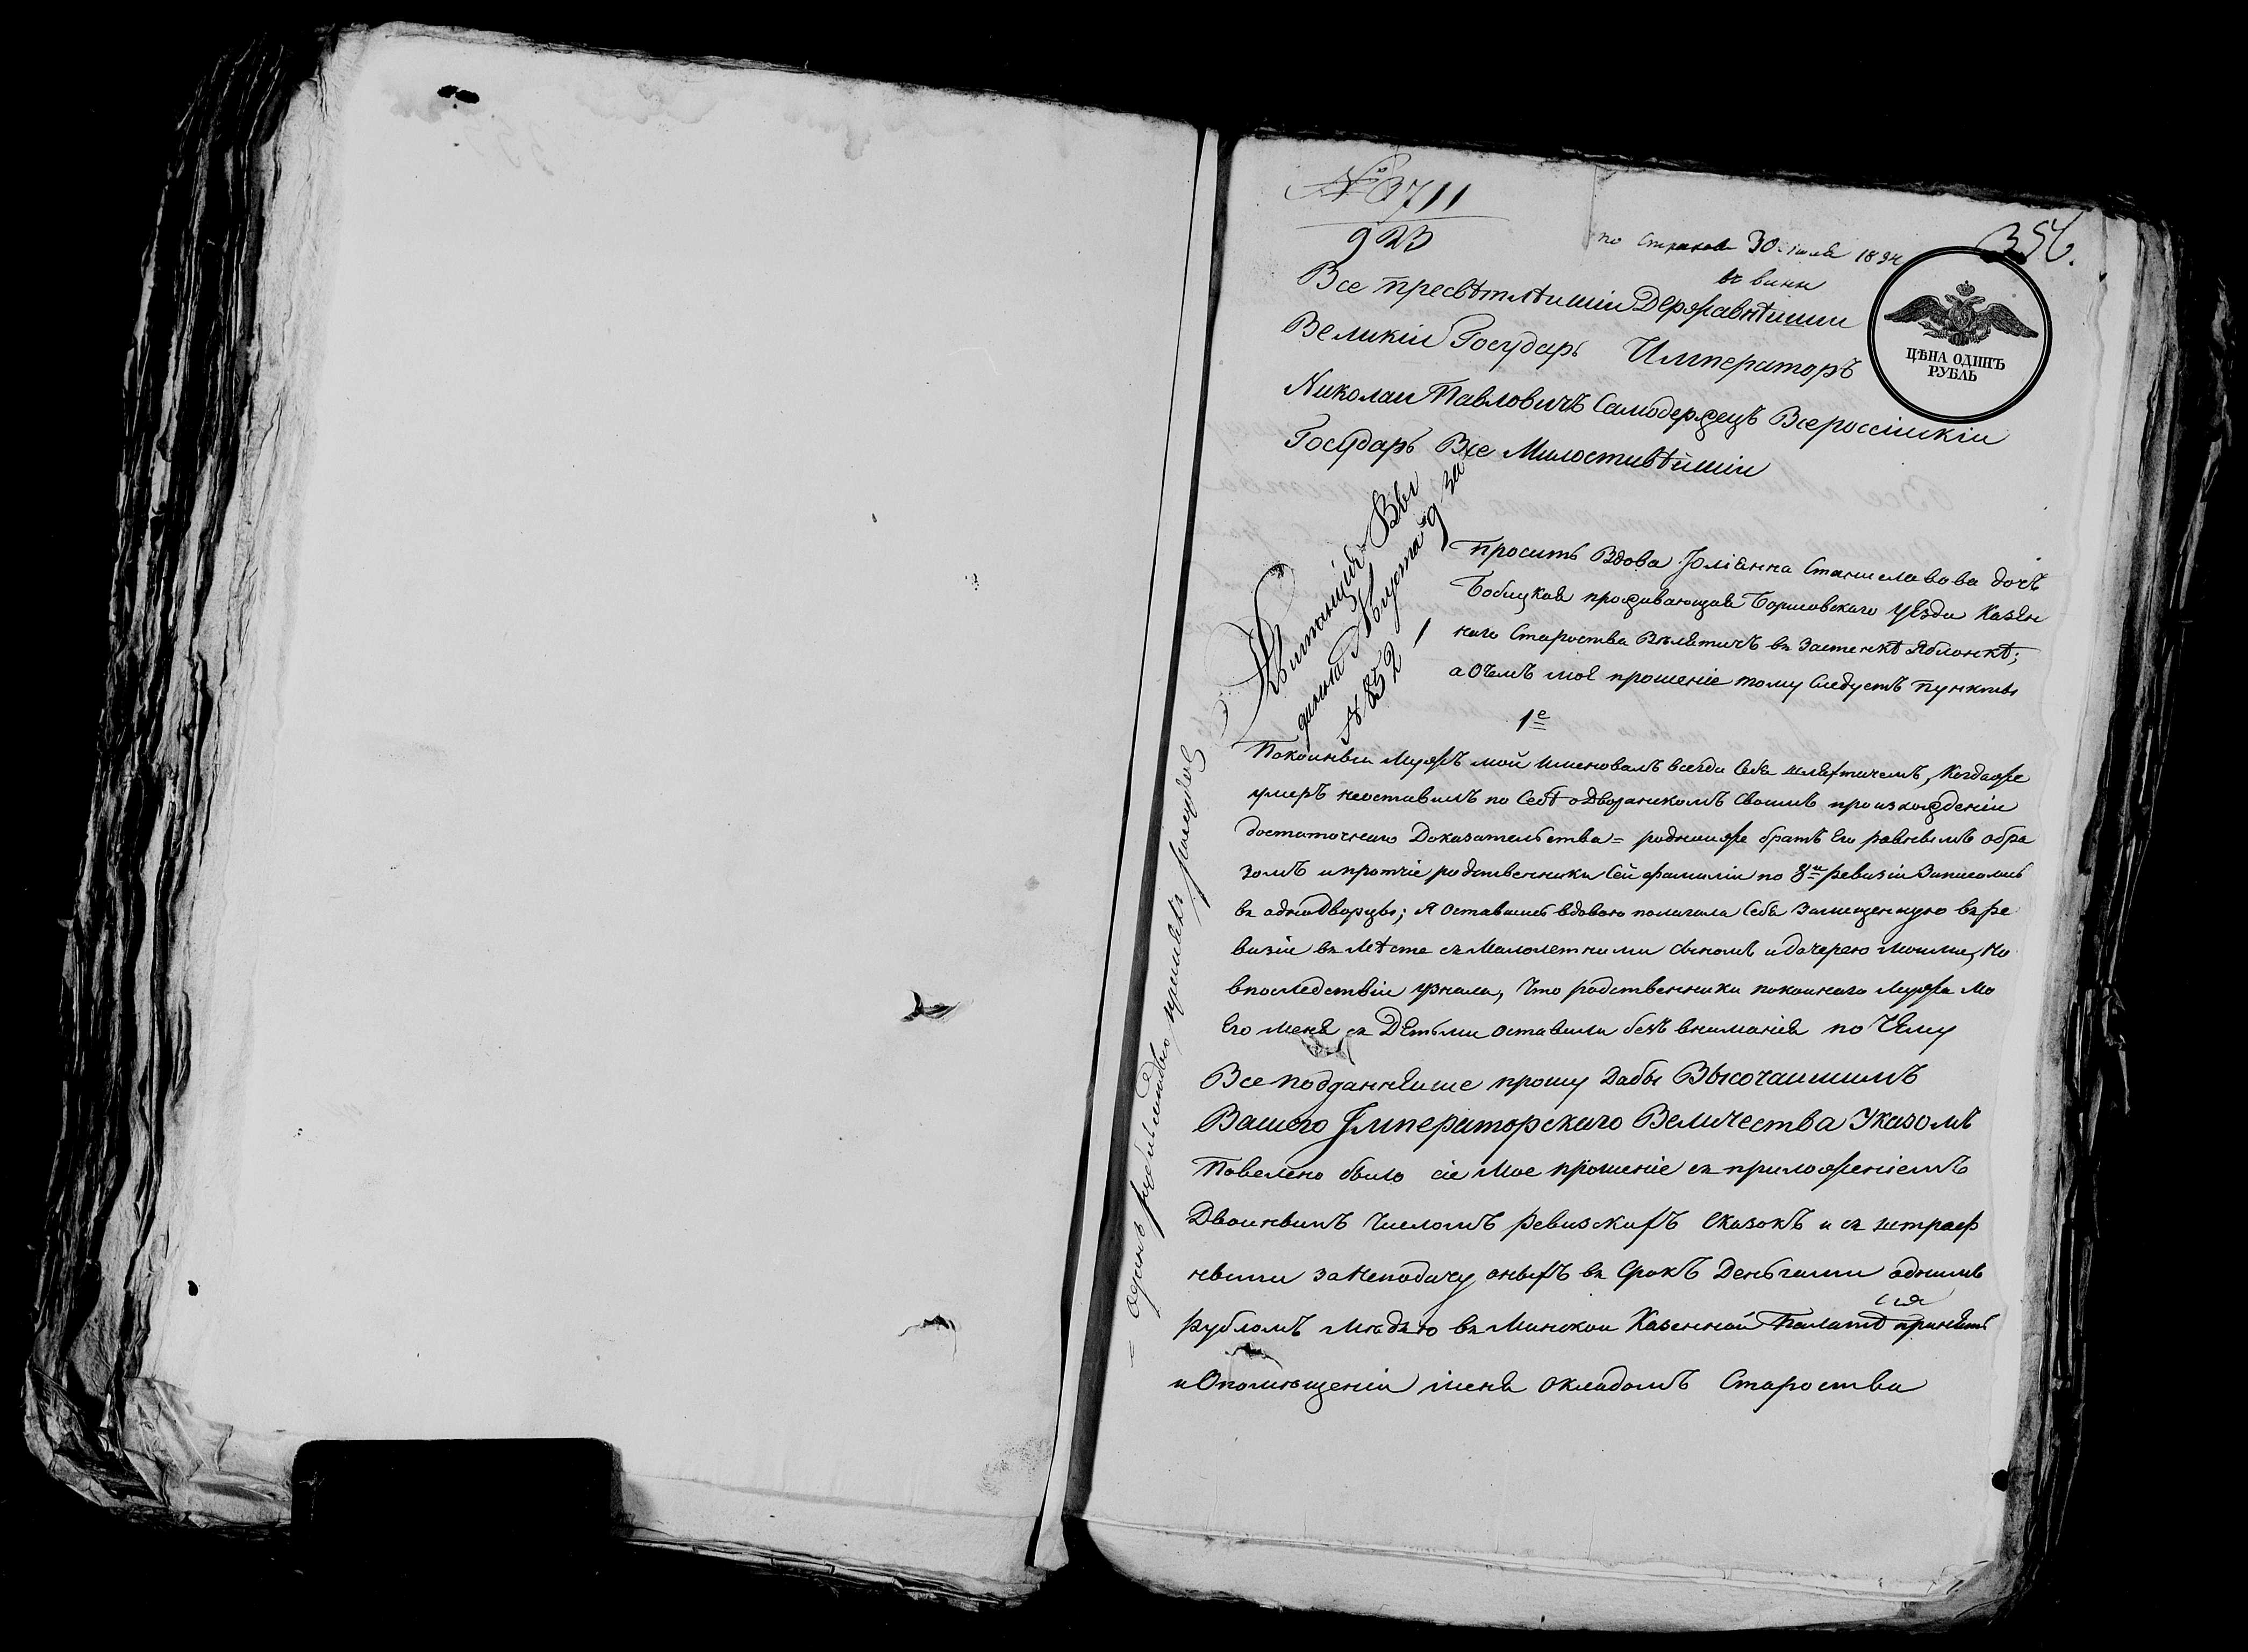 № 3711
923
356.
по 30 июля 1834
ЦѢНА ОДИНЪ
РУБЛЬ
Все пресвѣтлѣишіи Державнѣишии
Великіи Государь Императоръ
Николаи Павловичъ Самодержецъ Всероссіискіи
Государь Все Милостивѣйшіи
Квитанція
Августа 9
№ 852
просить Вдова Юліанна Станиславова дочъ
Бобицкая проживающая Борисовскаго уѣзда Казен
наго Староства въ Застенкѣ Яблонкѣ;
а Очемъ мое прошеніе тому Следуетъ Пункты
1е
Покоиныи Мужъ мой именовалъ всегда Себя шляхтичемъ, Когдаже
умеръ неоставилъ по Себѣ о Дворянскомъ Своимъ произхожденіи
достаточнаго Доказательства = роднииже братъ Его равнымъ обра
зомъ и протчіе родственники Сей фамиліи по 8й ревизіи Записались
въ однодворцы; Я Оставшись вдовою полагала Себя Замещенную въ ре
визіи въ Мѣсте съ Малолетними сыномъ и дочерею Моими, Но
впоследствіи узнала, Что родственники покоинаго Мужа Мо
Его Меня съ Детьми оставили безъ вниманія по Чему
Все подданнеише прошу Дабы Высочаишимъ
Вашего Императорскаго Величества Указомъ
Повелено было сіе Мое прошеніе съ приложеніемъ
Двоинымъ Числомъ Ревизскихъ Сказокъ и съ штраф
ными за Неподачу оныхъ въ Срокъ Деньгами однимъ
сія
Рубломъ въ Минскои Казенной Палатѣ принять
и О помѣщеніи меня окладомъ Староства